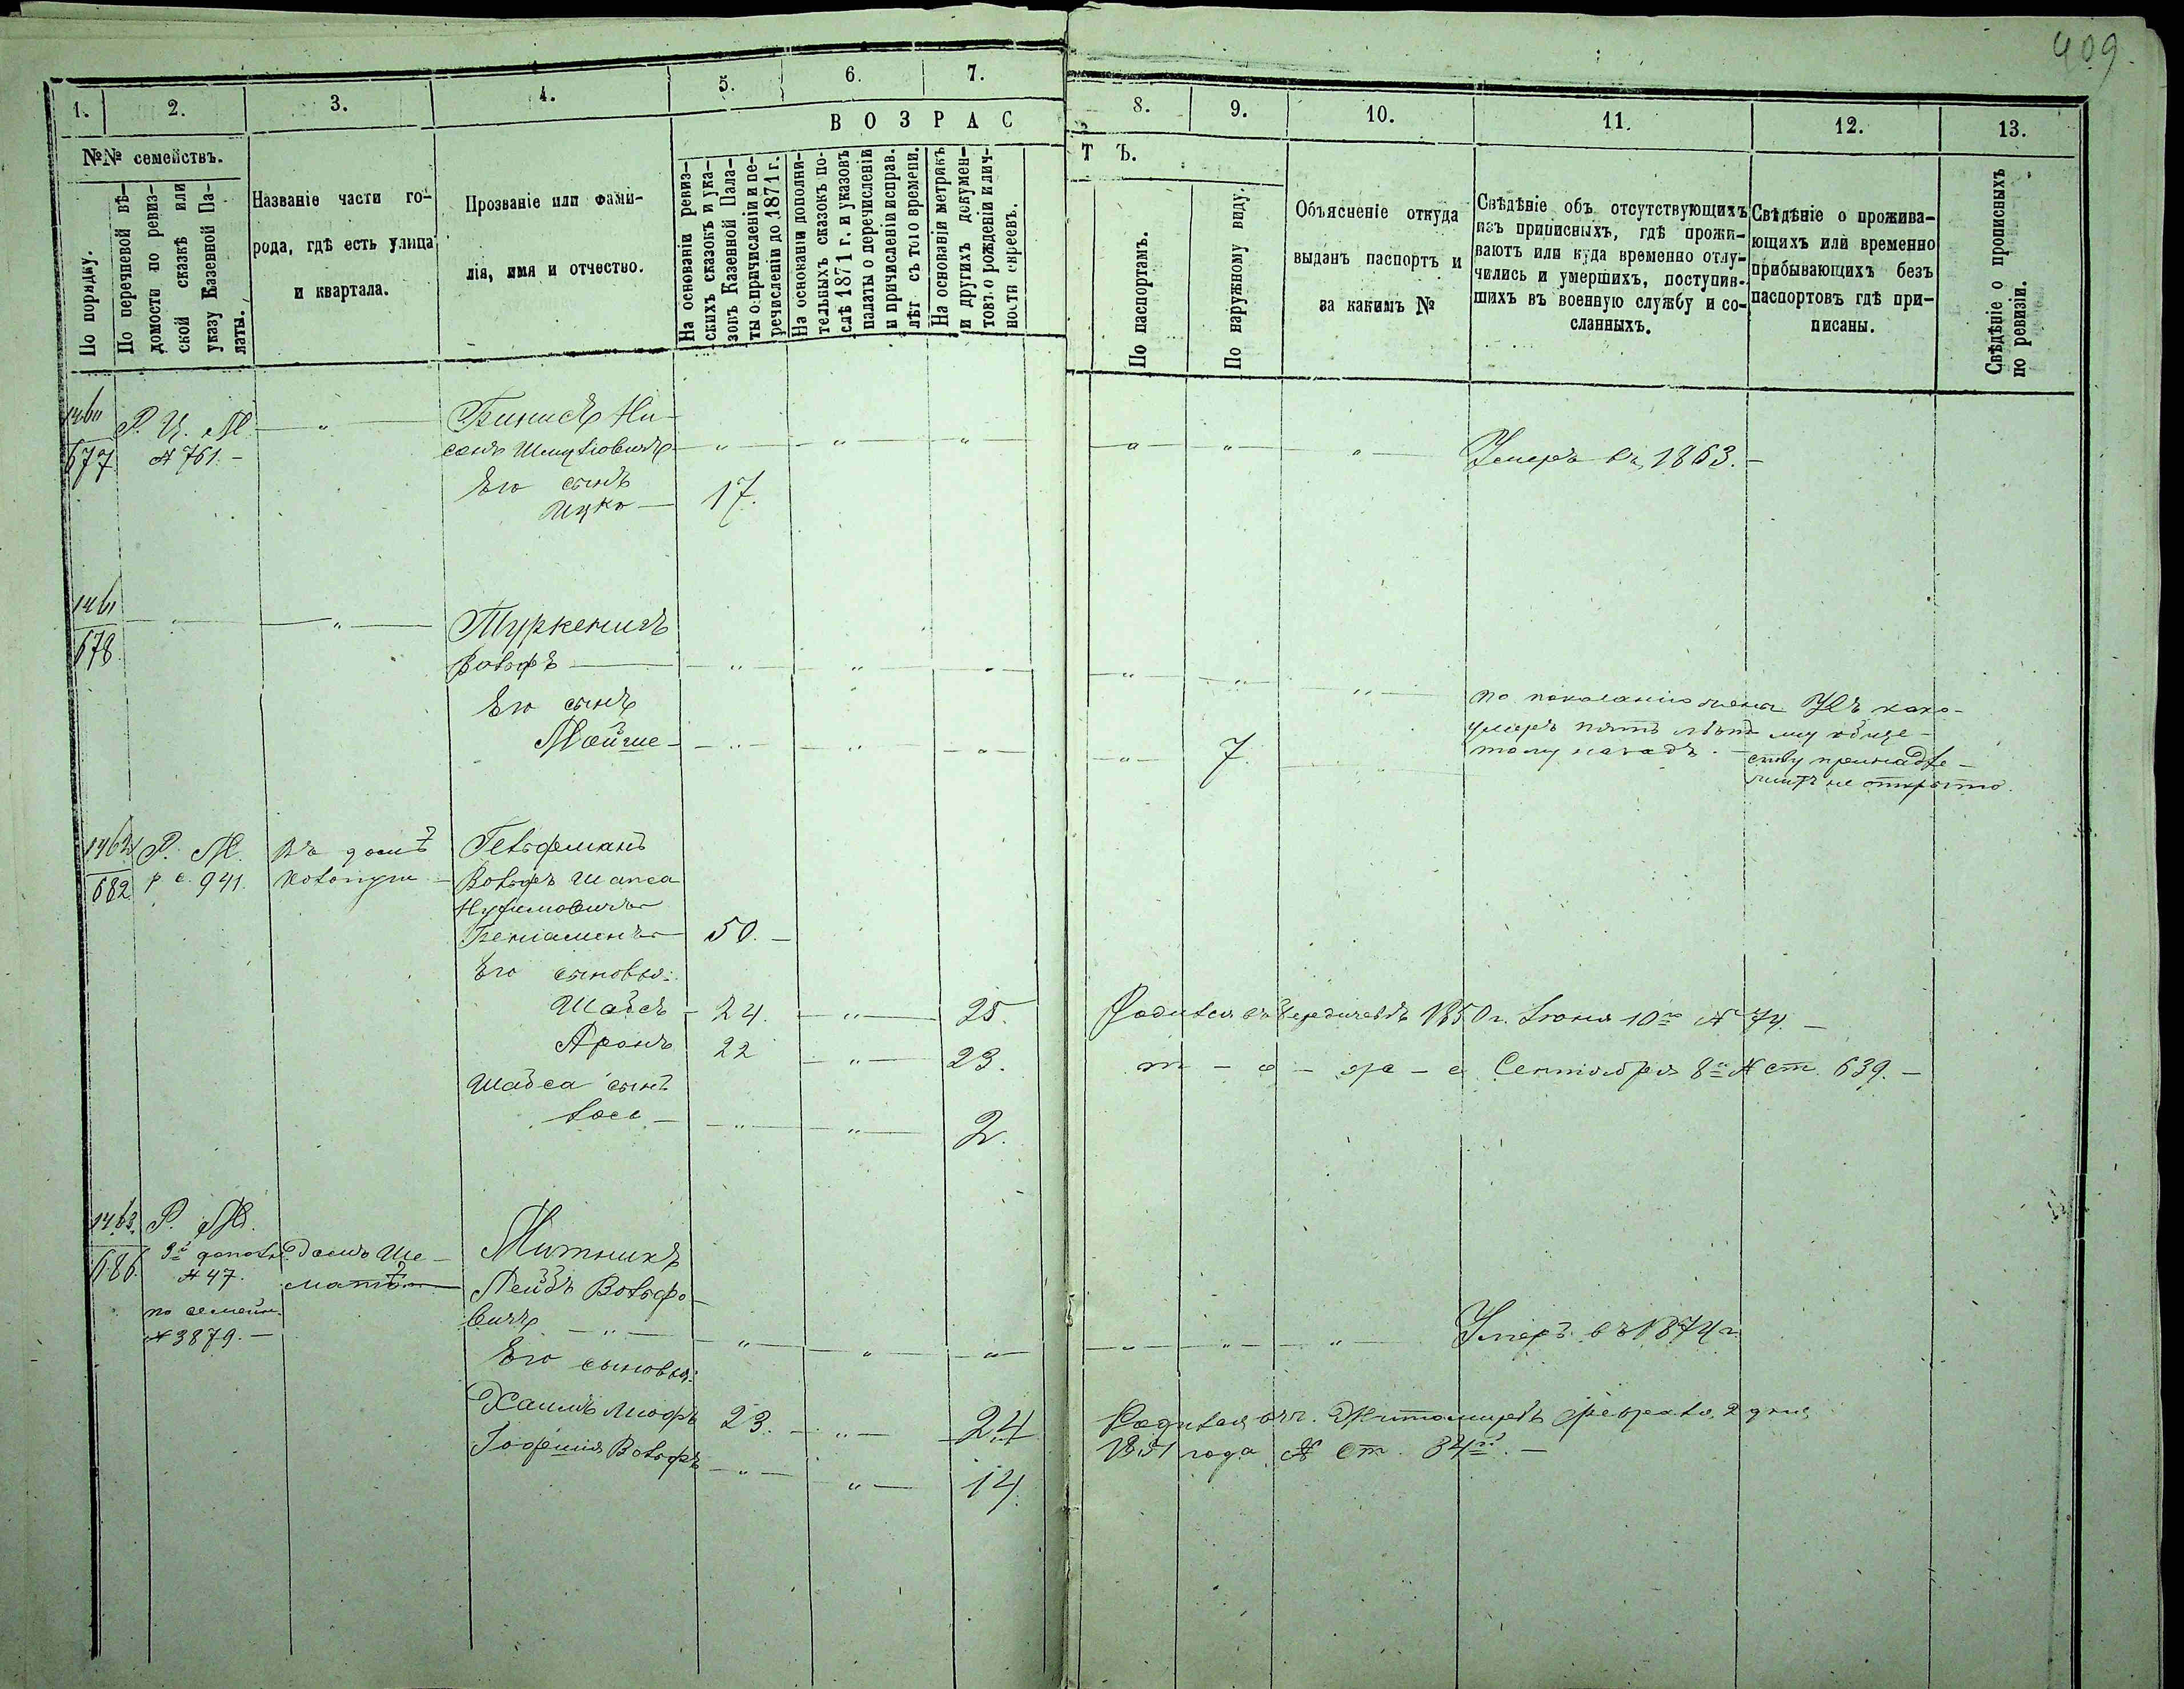 409.
1. 2. 3. 4. 5. 6. 7. 8. 9. 10. 11. 12. 13.
№№ семействъ.
По порядку.
По перечневой вѣ-
домости по ревиз-
ской сказкѣ или
указу Казенной Па-
латы.
Названіе части го-
рода, гдѣ есть улица
и квартала.
Прозваніе или фами-
лія, имя и отчество.
ВОЗРАС
ТЪ.
На основаніи ревиз-
скихъ сказокъ и ука-
зовъ Казенной Пала-
ты о причисленіи и пе-
речисленіи до 1871 г.
На основаніи дополни-
тельныхъ сказокъ по-
слѣ 1871 г. и указовъ
палаты о перечисленіи
и причисленіи исправ.
лѣт съ того времени.
На основаніи метрикъ
и другихъ докумен-
товъ о рожденіи и лич-
ности евреевъ.
По паспортамъ.
По наружному виду.
Объясненіе откуда
выданъ паспортъ и
за какимъ №
Свѣдѣніе объ отсутствующихъ
изъ приписныхъ, гдѣ прожи-
ваютъ или куда временно отлу-
чились и умершихъ, поступив-
шихъ въ военную службу и со-
сланныхъ.
Свѣдѣніе о прожива-
ющихъ или временно
прибывающихъ безъ
паспортовъ гдѣ при-
писаны.
Свѣдѣніе о прописныхъ
по ревизіи.
1460
677
Р. Ц. М.
№ 761. -
Бинисъ Ни-
санъ Шмулiовичъ
Умеръ въ 1863. -
Его сынъ
Ицко - 17.
1461
678
Туркеничъ
Вольфъ
Его сынъ
Мойше - 7.
По показанію
умеръ пять лѣтъ
тому назадъ. -
Къ како-
му обще-
ству принадле-
житъ не открыто.
1462
682
Р. М.
р. с. 941.
Въ домѣ
Гельфманъ
Вольфъ Шапса
Нухимовичъ
Бениаминъ 50. -
Его сыновья:
Шабсъ - 24. - " - 25.
Родился въ Бердичевѣ 1850 г. Іюня 10го № 74. -
Аронъ 22 - " - 23.
т - о - же - с Сентября 8го № ст. 639. -
Шабса сынъ
2.
1463.
686.
Р. М.
3й дополн.
№ 47.
по семейн.
№ 3879. -
Домъ Ше-
Митникъ
Лейбъ Вольфо-
вичъ
Умеръ въ 1874 г.
Его сыновья:
Хаимъ 23. - " - 24
Родился въ г. Житомирѣ Февраля 2 дня
1851 года № ст. 34й. -
Вольфъ - " - 14.